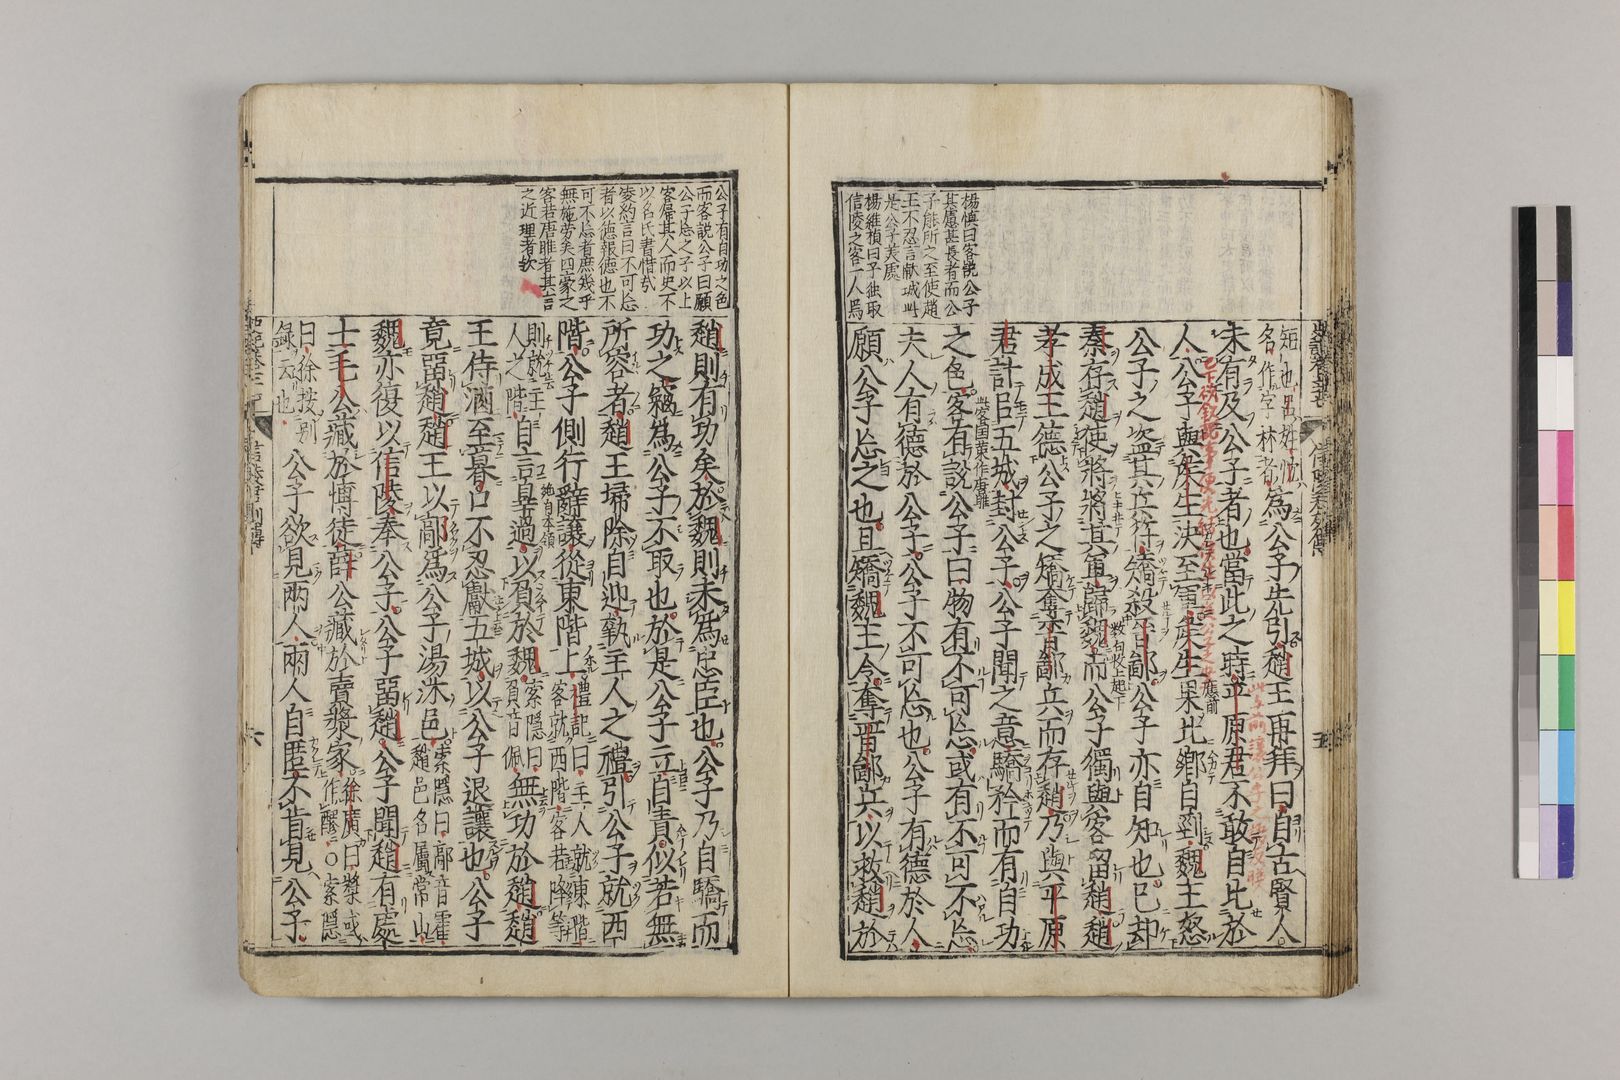 楊慎曰客說公子
其慮甚長者而公
子能所之至使趙
王不忍言献城此
是公子美處
楊維禎曰予独取
信陵之客一人焉
短也呂姓
名作字林者
為公子先引趙王再拜曰自古賢人
未有及公子者也當此之時平原君不敢自比於
人公子與侯生決至軍侯生果北鄉自剄魏王怒
公子之盜其兵符矯殺晉鄙公子亦自知也已却
秦存趙使將將其軍歸魏而公子獨與客留趙趙
孝成王德公子之矯奪晉鄙兵而存趙乃與平原
君計曰五城封公子公子聞之意驕矜而有自功
之色客有說公子曰物有不可忘或有不可不忘
此客国策作唐雎
夫人有德於公子公子不可忘也公子有德於人
願公子忘之也且矯魏王令奪晉鄙兵以救趙於
公子有自功之色
而客説公子曰願
公子忘之予以上
客帰其人而史不
以名氏書惜哉
凌約言曰不可忘
者以德報德也不
可不忘者庶幾乎
無施勞矣四豪之
客若唐雎者其言
之近理者歟
趙則有功矣於魏則未為忠臣也公子乃自驕而
功之竊為公子不取也於是公子立自責似若無
所容者趙王埽除自迎執主人之禮引公子就西
階公子側行辭讓從東階上
禮記曰主人就東階
客就西階客若降等
則就主
人之階
自言辠過以負於魏
索隱曰
負音佩
無功於趙趙
王侍酒至暮口不忍獻五城以公子退讓也公子
竟留趙趙王以鄗為公子湯沐邑
索隱曰鄗音霍
趙邑名屬常山
魏亦復以信陵奉公子公子留趙公子聞趙有處
士毛公藏於博徒薛公藏於賣漿家
徐廣曰漿或
作醪○索隱
曰徐按别
録云也
公子欲見兩人兩人自匿不肯見公子